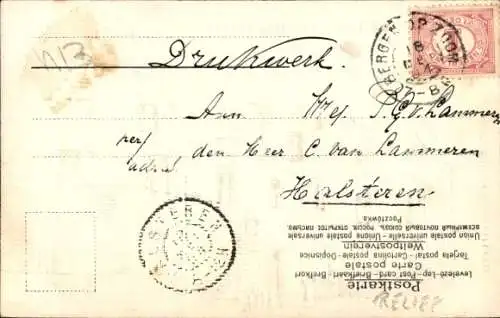 BERGEN OP ZOOM
Drukwerk.
Aan Mej. J. G. v. Lammeren
per/
adres den Heer C. van Lammeren
Halsteren
ВСЕМІРНЫЙ ПОЧТОВЫЙ СОЮЗЪ, РОССІЯ, ОТКРЫТОЕ ПИСЬМО.
Pocztówka
Union postale universelle
Weltpostverein
Tarjeta postal - Cartolina postal - Dopisnice
Carte postale
Levelező-Lap - Post card - Briefkaart - Brefkort
Postkarte
RELIEF